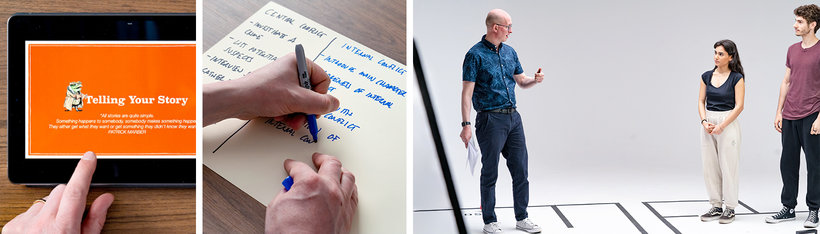 Telling Your Story
"All stories are quite simple.
Something happens to somebody, somebody makes something happen
They either get what they want or get something they didn't know they wan
PATRICK MARBER
CENTRAL CONFLICT
- INVESTIGATE A
CRIME
- LIST POTENTIAL
SUSPECTS
- INTERVIEW
INTERNAL CONFLICT
- INTRODUCE MAIN CHARACTER
OF INTERNAL
CONFLICT
OF
INTERNAL